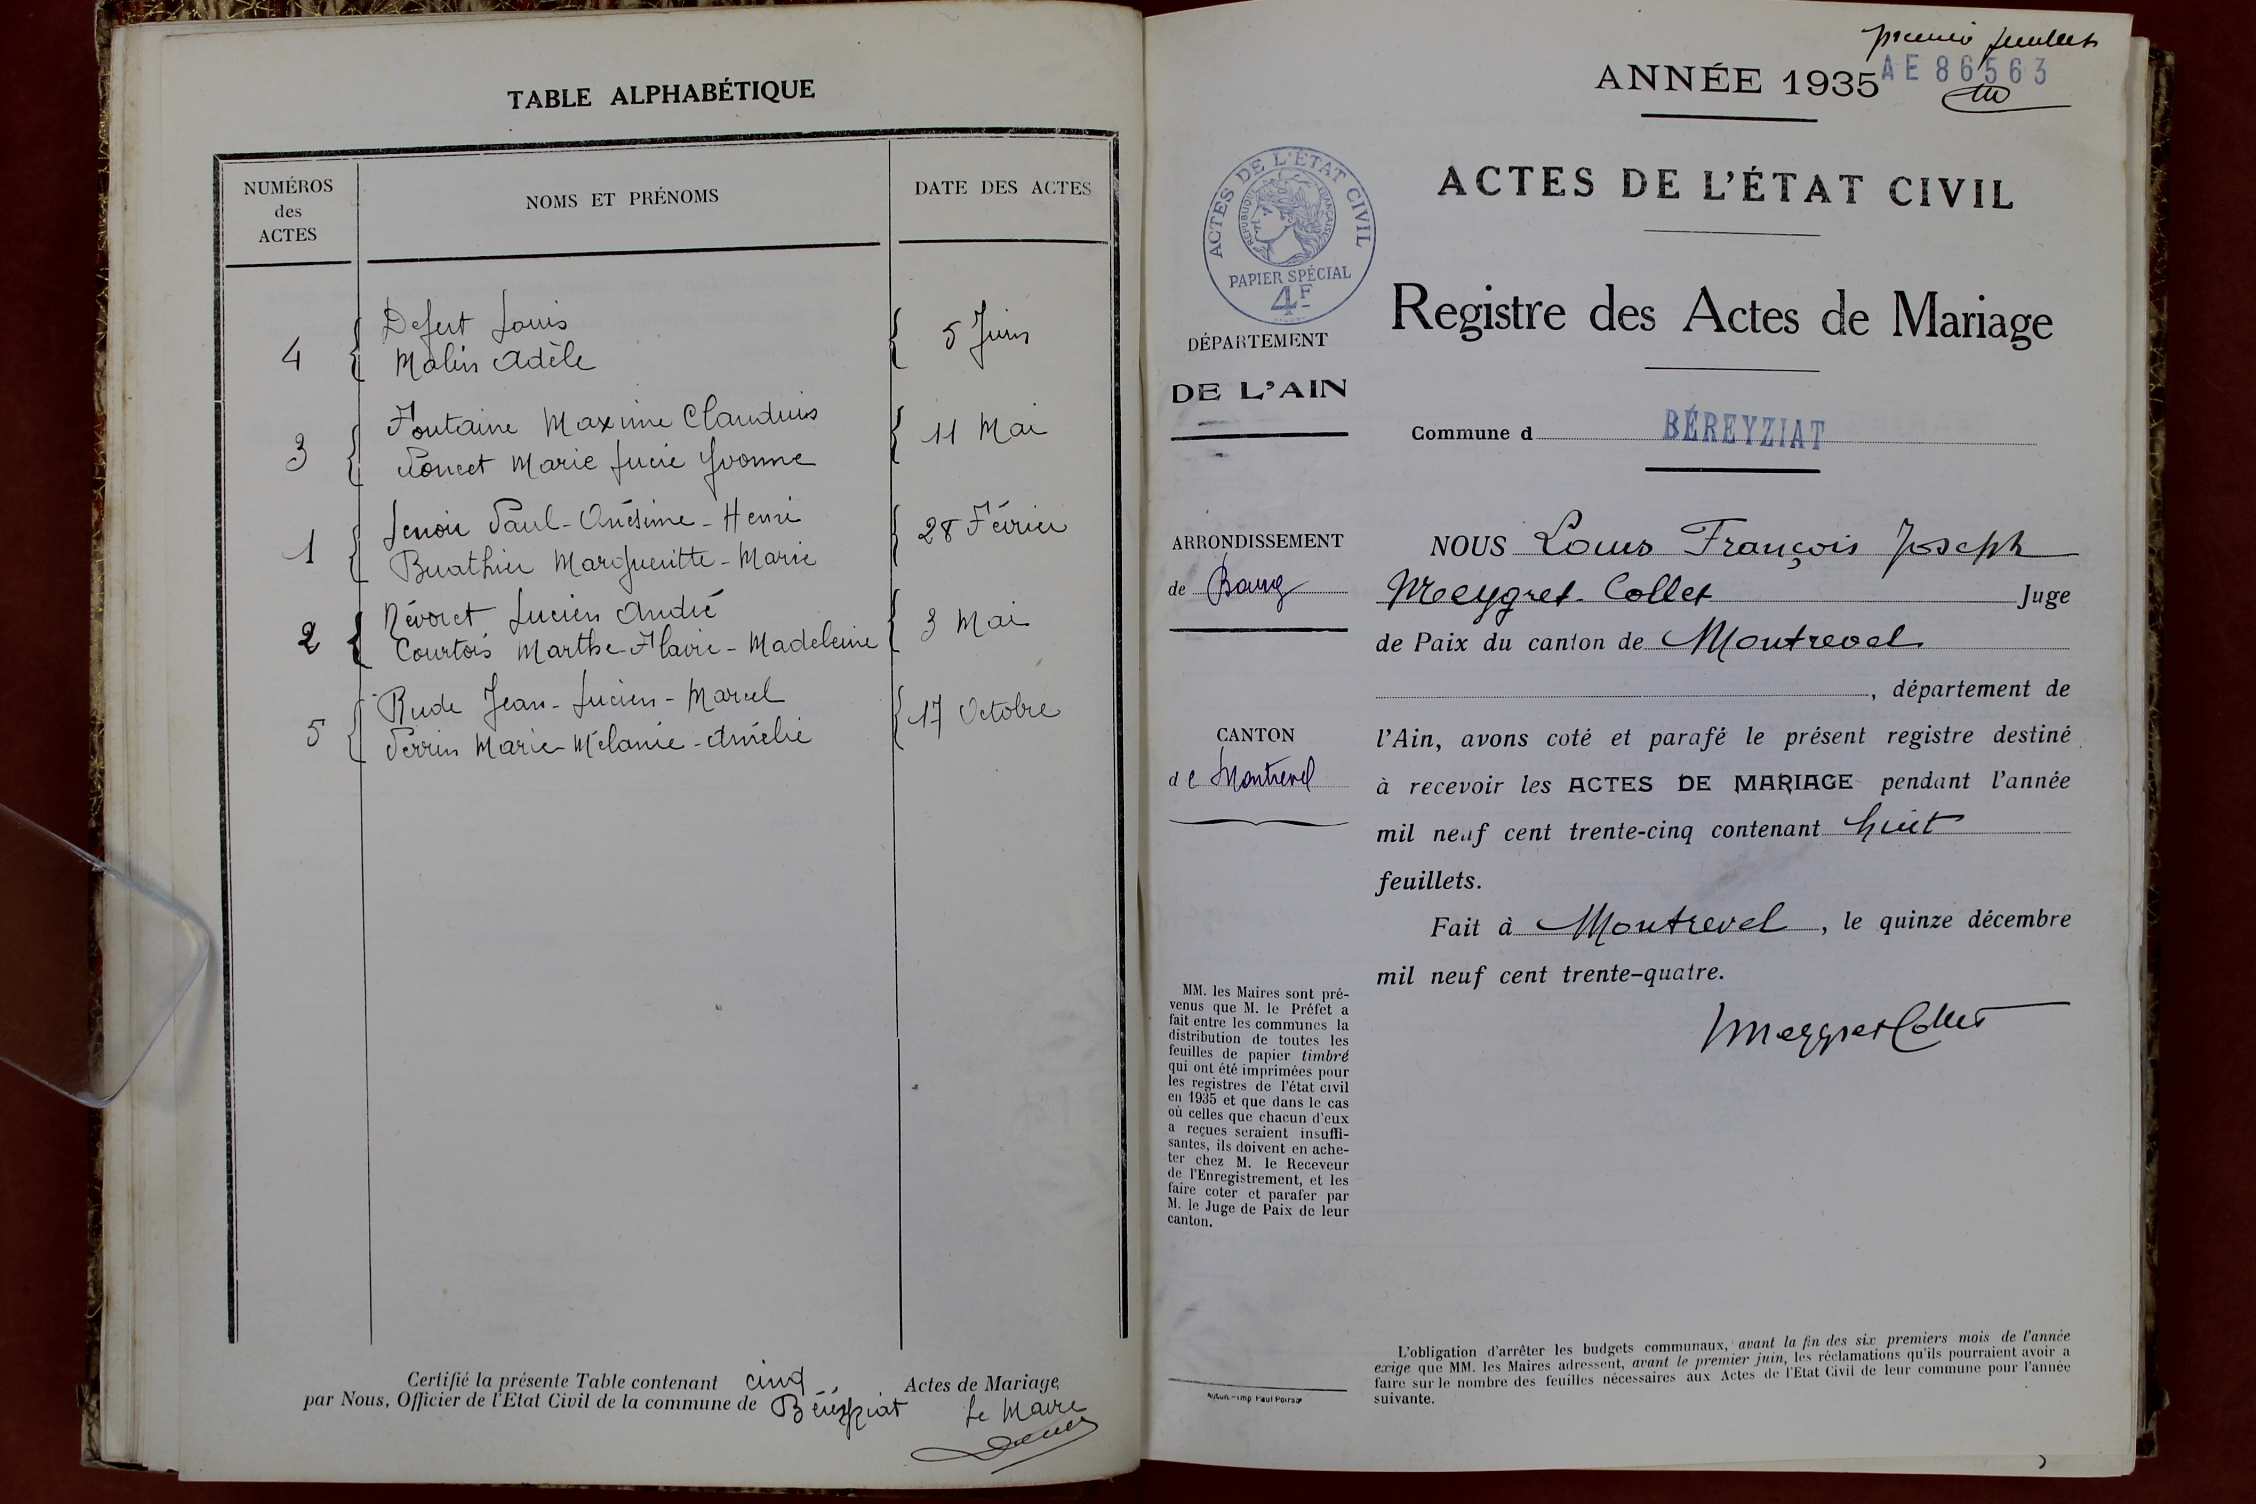 TABLE ALPHABÉTIQUE
NUMÉROS
des
ACTES
NOMS ET PRÉNOMS
DATE DES ACTES
4
Defert Louis
Malin Adèle
5 Juin
3
Fontaine Maxime Claudius
Poncet Marie Lucie Yvonne
11 Mai
1
Lenoir Paul-Onésime-Henri
Buathier Margueritte-Marie
28 Février
2
Névoret Lucien André
Courtois Marthe-Flavie-Madeleine
3 Mai
5
Rude Jean-Lucien-Marcel
Perrin Marie-Mélanie-Amélie
17 Octobre
Certifié la présente Table contenant cinq Actes de Mariage,
par Nous, Officier de l'Etat Civil de la commune de Béreyziat
Le Maire
premier feuillet
ANNÉE 1935
AE 86563
ACTES DE L'ÉTAT CIVIL
RÉPUBLIQUE FRANÇAISE
PAPIER SPÉCIAL
4F
ACTES DE L'ÉTAT CIVIL
Registre des Actes de Mariage
DÉPARTEMENT
DE L'AIN
Commune d BÉREYZIAT
ARRONDISSEMENT
de Bourg
CANTON
de Montrevel
NOUS Louis François Joseph
Meygret-Collet Juge
de Paix du canton de Montrevel
, département de
l'Ain, avons coté et parafé le présent registre destiné
à recevoir les ACTES DE MARIAGE pendant l'année
mil neuf cent trente-cinq contenant huit
feuillets.
Fait à Montrevel, le quinze décembre
mil neuf cent trente-quatre.
Meygret Collet
MM. les Maires sont pré-
venus que M. le Préfet a
fait entre les communes la
distribution de toutes les
feuilles de papier timbré
qui ont été imprimées pour
les registres de l'état civil
en 1935 et que dans le cas
où celles que chacun d'eux
a reçues seraient insuffi-
santes, ils doivent en ache-
ter chez M. le Receveur
de l'Enregistrement, et les
faire coter et parafer par
M. le Juge de Paix de leur
canton.
L'obligation d'arrêter les budgets communaux, avant la fin des six premiers mois de l'année
exige que MM. les Maires adressent, avant le premier juin, les réclamations qu'ils pourraient avoir a
faire sur le nombre des feuilles nécessaires aux Actes de l'Etat Civil de leur commune pour l'année
suivante.